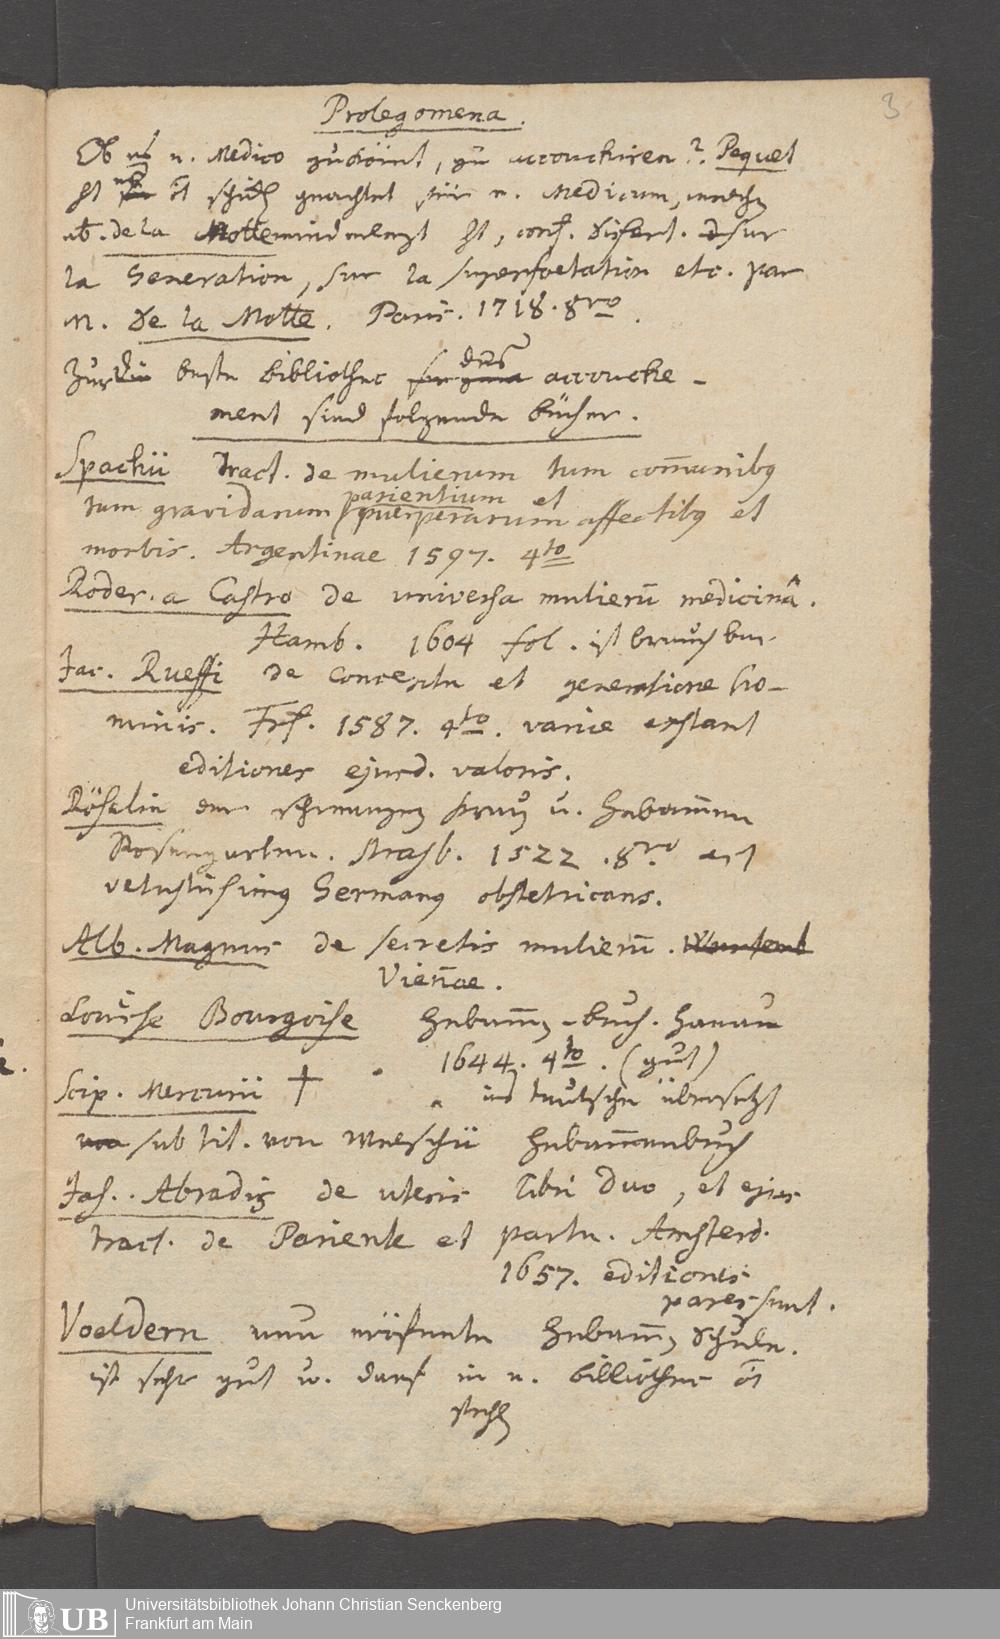 3
Prolegomena.
Ob es e. Medico zukömt, zu accouchiren? Pequet
st schickl geachtet für e. Medicum, welches
ab. de la Motte st, conf. Dissert. sur
la Generation, sur la superfoetation etc. par
M. De la Motte. Paris. 1718. 8vo.
Zur beste bibliothec des accouche-
ment sind folgende bücher.
Spachii tract. de mulierum tum com̄unibq
tum gravidarum parientium et
puerperarum affectibq et
morbis. Argentinae 1597. 4to
Roder. a Castro de universa mulierū medicinâ.
Hamb. 1604 fol. ist brauchbar.
Jac. Rueffi de Conceptu et generatione ho-
minis. Frf. 1587. 4to. variae exstant
editiones ejusd. valoris.
Röselin der schwangeren frauen u. Hebam̄en
Rosengarten. Strasb. 1522. 8vo est
vetustissimq Germanq obstetricans.
Alb. Magnus de secretis mulierū.
Vien̄ae.
Louise Bourgoise Hebam̄en-buch. Hanau
1644. 4to. (gut)
Scip. Mercurii + ins teutsche übersetzt
sub tit. von Welschii Hebam̄enbuch
Jas. Abradiq de uteris libri duo, et ejus
tract. de Pariente et partu. Amsterd.
1657. editiones
pares sunt.
Voeldern neu eröfnete Hebam̄en Schule.
ist sehr gut u. darf in e. bibliothec
fehlen
UB
Universitätsbibliothek Johann Christian Senckenberg
Frankfurt am Main